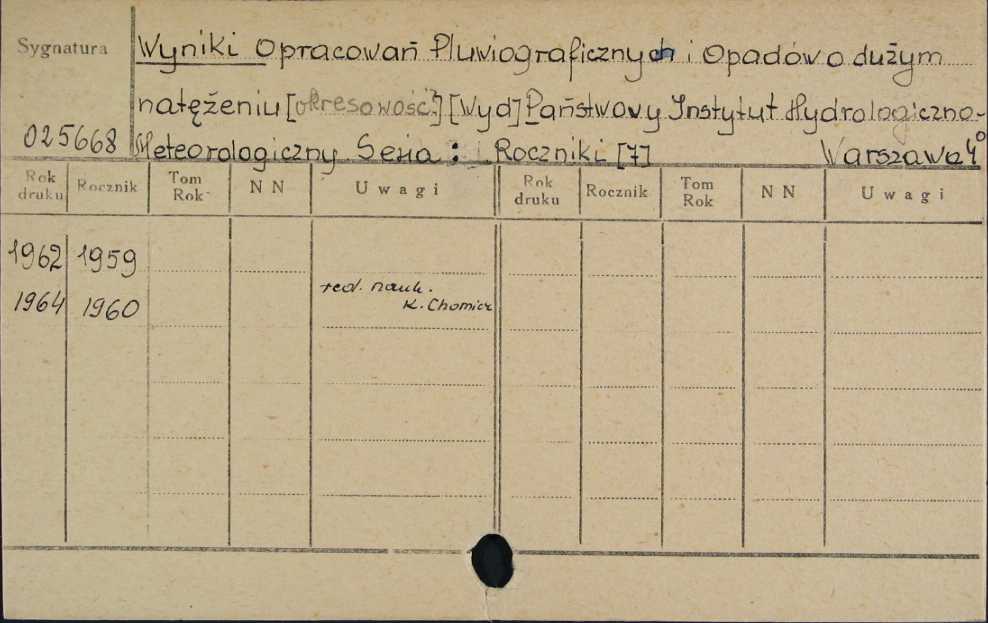 Sygnatura
Wyniki Opracowań Pluwiograficznych i Opadów o dużym
natężeniu [okresowość:] [Wyd] Państwowy Instytut Hydrologiczno-
025668 Meteorologiczny. Seria: Roczniki [7] Warszawa 4°
Rok druku Rocznik Tom Rok NN Uwagi Rok druku Rocznik Tom Rok NN Uwagi
1962 1959
1964 1960 red. nauk.
K. Chomicz